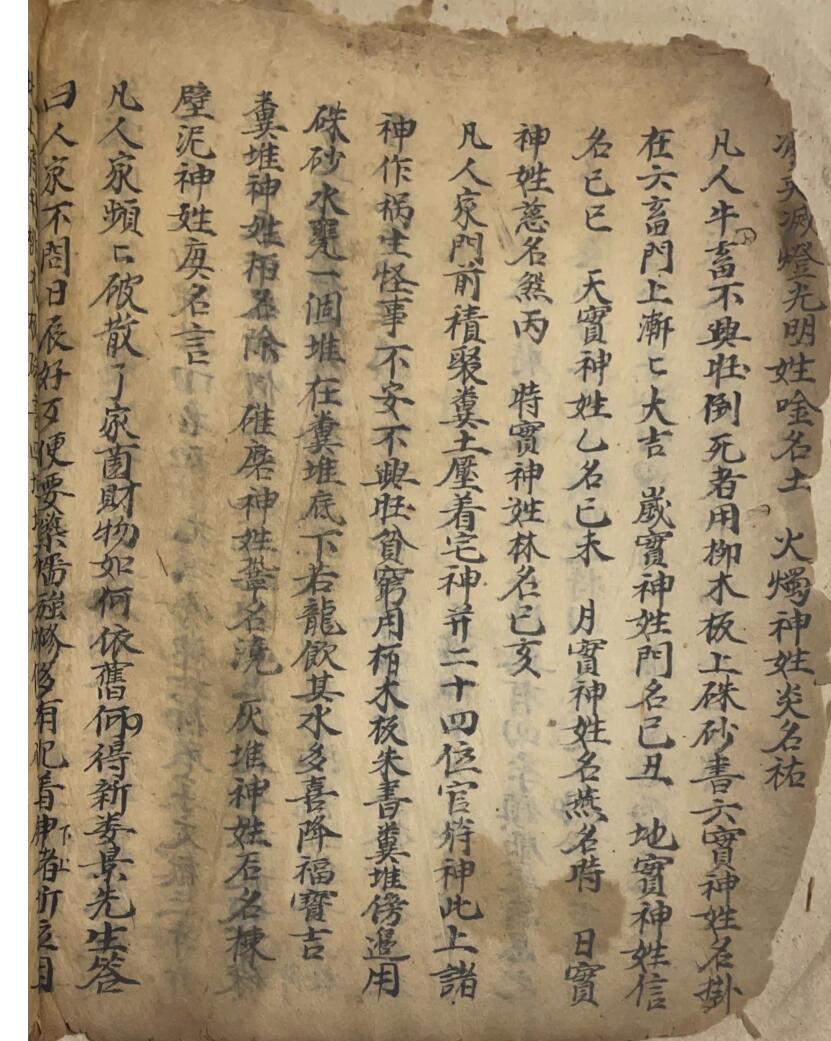 滅燈光明姓唫名土　火燭神姓炎名祐
凡人牛畜不興旺倒死者用柳木板上硃砂書六寳神姓名掛
在六畜門上漸〻大吉　歲寳神姓門名已丑　地寳神姓信
名已巳　天寳神姓乙名已未　月寳神姓名燕名時　日寳
神姓慈名煞丙　時寳神姓林名已亥
凡人家門前積聚糞土壓着宅神并二十四位官將神此上諸
神作禍生怪事不安不興旺貧窮用栢木板朱書糞堆傍邉用
硃砂水甕一個堆在糞堆底下若龍飲其水多喜降福寳吉
糞堆神姓栢名除　碓磨神姓名澆　灰堆神姓石名棟
壁泥神姓庚名言
凡人家頻〻破散了家菌財物如何依舊何得新婁景先生答
曰人家不問日辰好歹便要築墻修有犯着